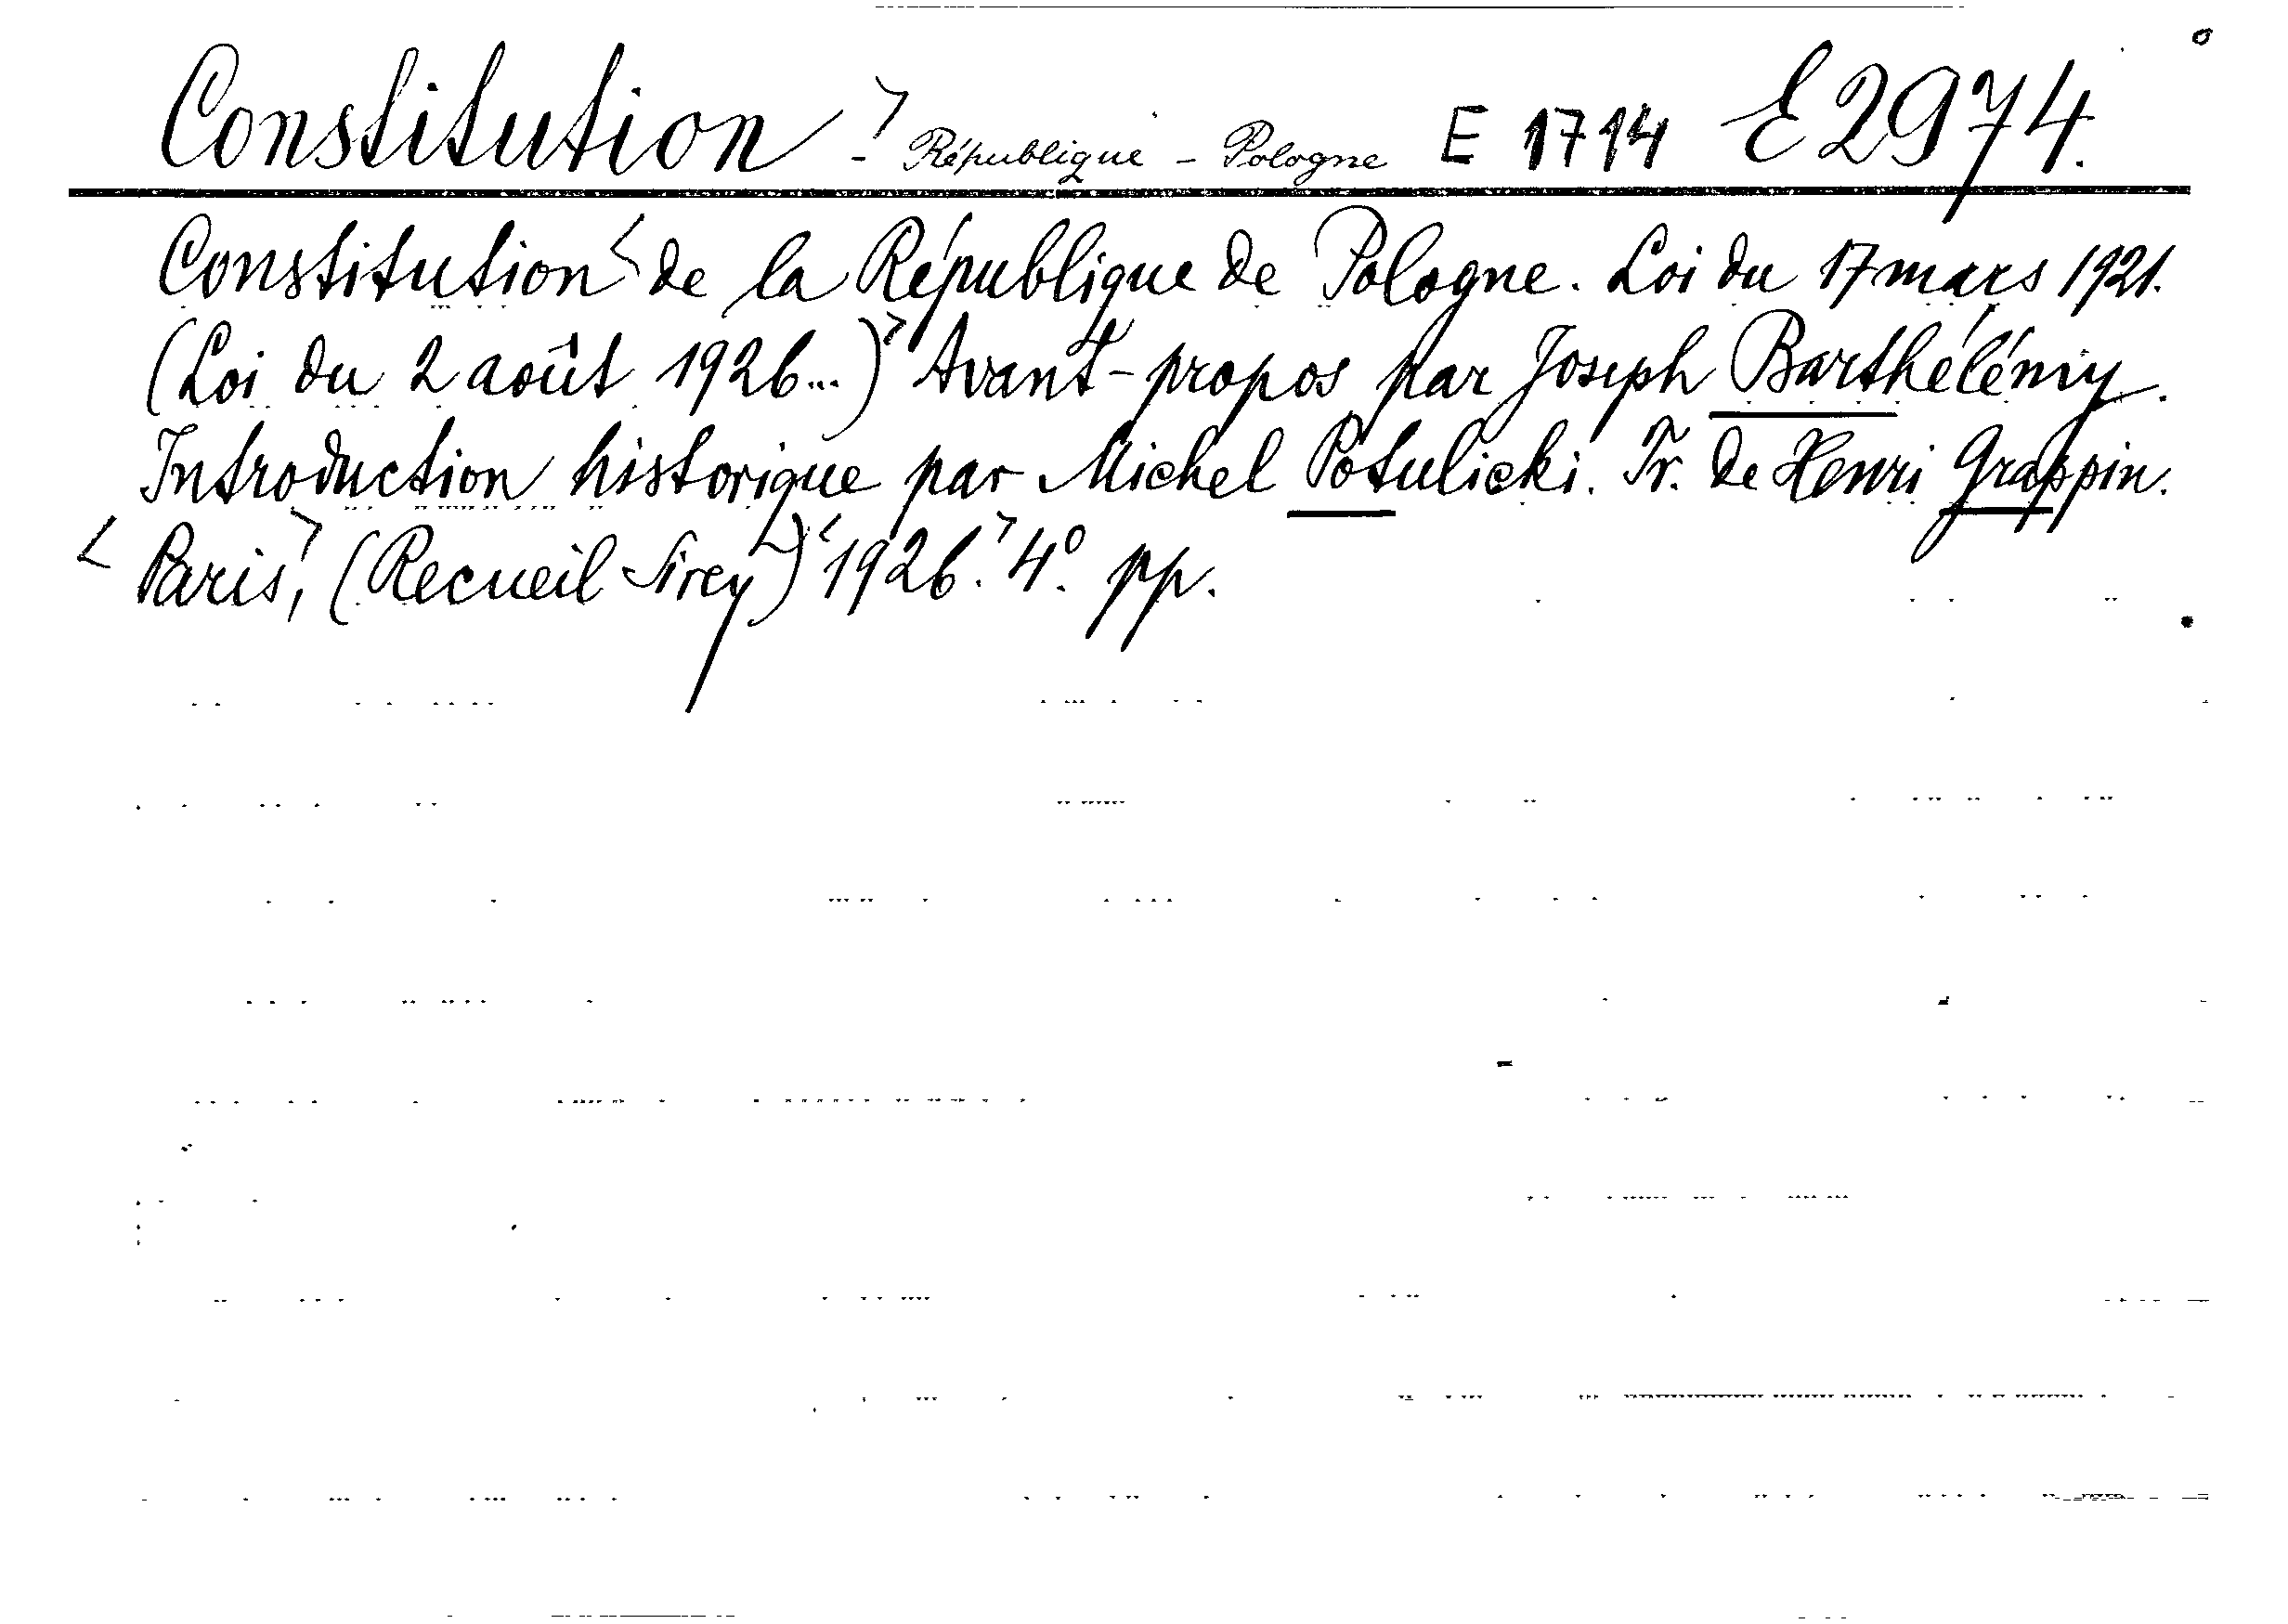 Constitution - République - Pologne E 1714 E 2974.
Constitution de la République de Pologne. Loi du 17 mars 1921.
(Loi du 2 août 1926...) Avant-propos par Joseph Barthélémy.
Introduction historique par Michel Potulicki. Tr. de Henri Grappin.
Paris, (Recueil Sirey) 1926. 4º. pp.